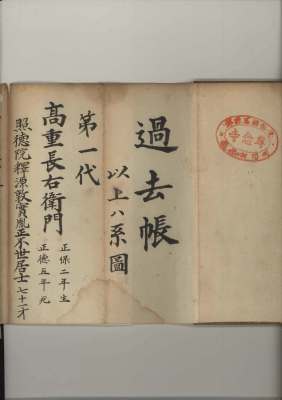 過去帳
以上ハ系圖
第一代
髙重長右衛門
正保二年生
正德五年死
照德院釋源敦實胤正不世居士 七十一才